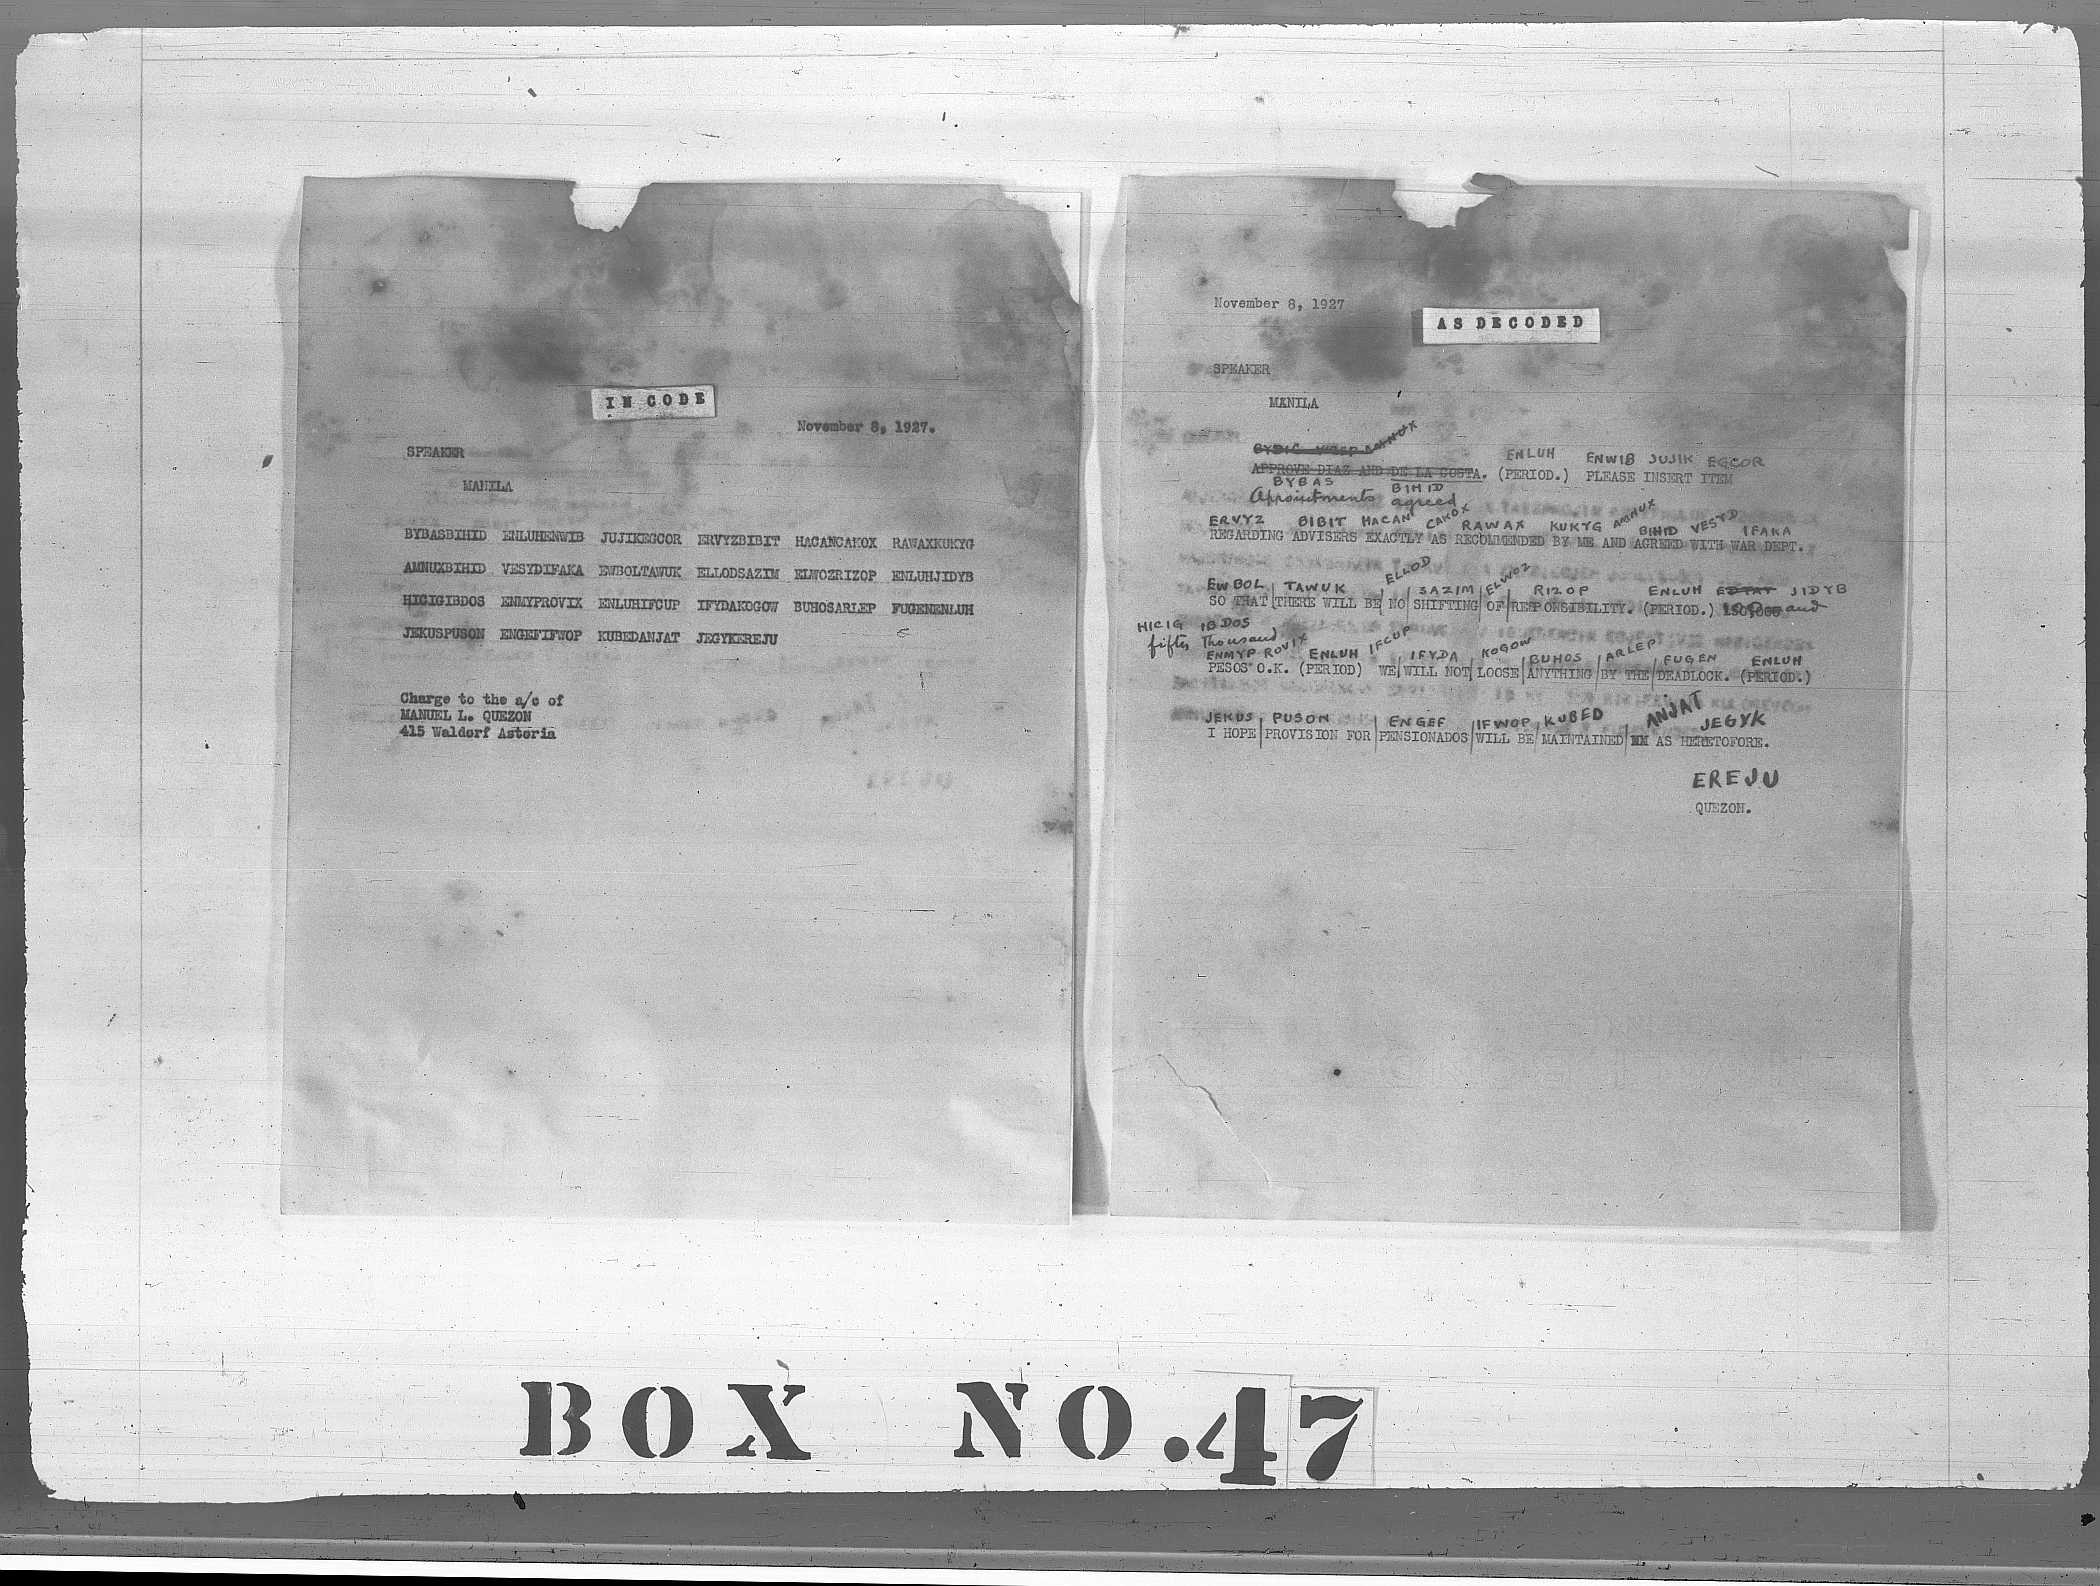 IN CODE
November 8, 1927.
SPEAKER
MANILA
BYBASBIHID ENLUHENWIB JUJIKEGCOR ERVYZBIBIT HACANCAKOX RAWAXKUKYG
AMNUXBIHID VESYDIFAKA EWBOLTAWUK ELLODSAZIM ELWOZRIZOP ENLUHJIDYB
HICIGIBDOS ENMYPROVIX ENLUHIFCUP IFYDAKOGOW BUHOSARLEP FUGENENLUH
JEKUSPUSON ENGEFIFWOP KUBEDANJAT JEGYKEREJU
Charge to the a/c of
MANUEL L. QUEZON
415 Waldorf Astoria
November 8, 1927
AS DECODED
SPEAKER
MANILA
AMNUX
ENLUH ENWIB JUJIK EGCOR
APPROVE DIAZ AND DE LA COSTA. (PERIOD.) PLEASE INSERT ITEM
BYBAS BIHID
Appointments agreed
ERVYZ BIBIT HACAN CAKOX RAWAX KUKYG AMNUX BIHID VESYD IFAKA
REGARDING ADVISERS EXACTLY AS RECOMMENDED BY ME AND AGREED WITH WAR DEPT.
EWBOL TAWUK ELLOD SAZIM ELWOZ RIZOP ENLUH EDTAT JIDYB
SO THAT THERE WILL BE NO SHIFTING OF RESPONSIBILITY. (PERIOD.) 150,000 and
HICIG IBDOS
fifter Thousand
ENMYP ROVIX ENLUH IFCUP IFYDA KOGOW BUHOS ARLEP FUGEN ENLUH
PESOS O.K. (PERIOD) WE WILL NOT LOOSE ANYTHING BY THE DEADLOCK. (PERIOD.)
JEKUS PUSON ENGEF IFWOP KUBED ANJAT JEGYK
I HOPE PROVISION FOR PENSIONADOS WILL BE MAINTAINED AS HERETOFORE.
EREJU
QUEZON.
BOX NO. 47